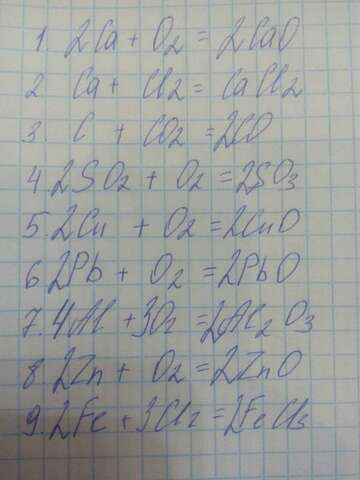 1. 2Ca + O2 = 2CaO
2 Ca + Cl2 = CaCl2
3. C + CO2 = 2CO
4. 2SO2 + O2 = 2SO3
5. 2Cu + O2 = 2CuO
6 2Pb + O2 = 2PbO
7. 4Al + 3O2 = 2Al2O3
8. 2Zn + O2 = 2ZnO
9. 2Fe + 3Cl2 = 2FeCl3